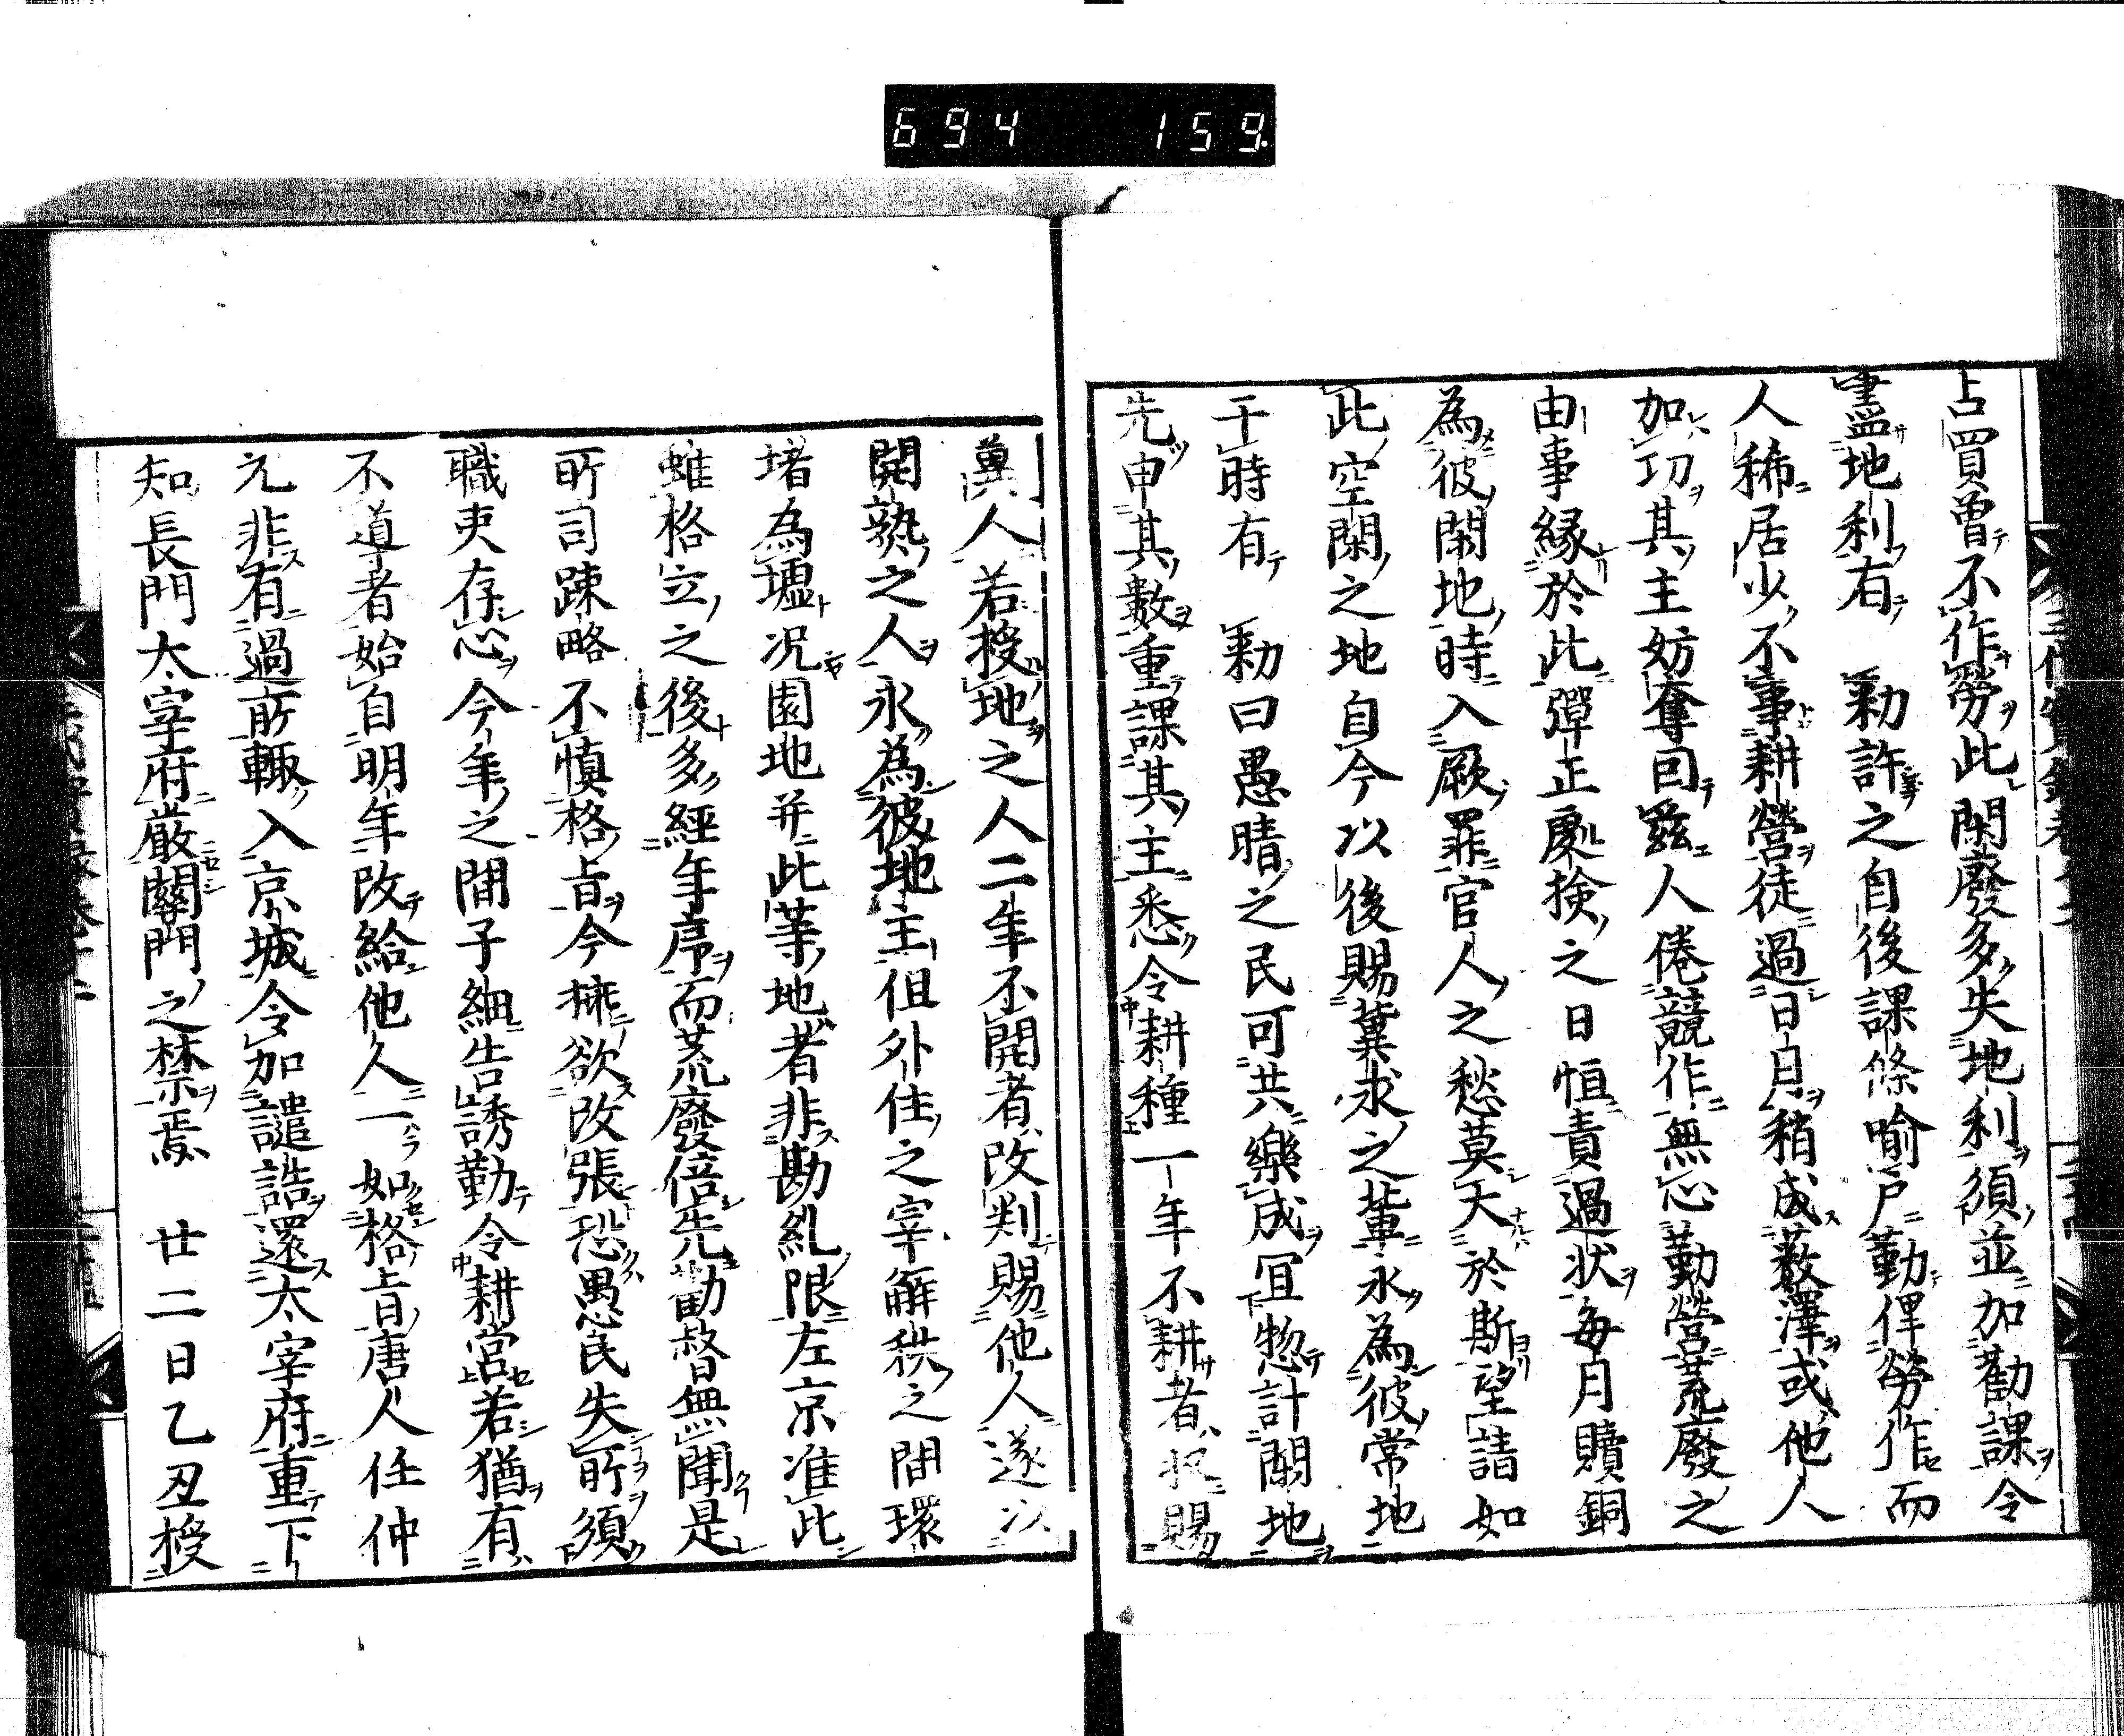 694 159
占買曾不作勞此閑廢多失地利須並加勸課令
盡地利有 勅許之自後課條喻戶勤俾勞作而
人稀居少不事耕營徒過日月稍成薮澤或他人
加功其主妨奪囙玆人倦競作無心勤營荒廢之
由事縁於此彈正處捡之日恒責過状每月贖銅
為彼閑地時入厥罪官人之愁莫大於斯望請如
此空閑之地自今以後賜冀求之輩永為彼常地
于時有 勅曰愚晴之民可共樂成冝惣計閑地
先申其數重課其主悉令耕種一年不耕者収賜
冀人若授地之人二年不開者改判賜他人遂以
開熟之人永為彼地主但外住之宰解秩之間環
堵為墟況園地并此等地者非勘糺限左京准此
雖格立之後多經年序而荒廢倍先勸督無聞是
所司踈略不慎格旨今擬欲改張恐愚民失所須
職吏存心今年之間子細告誘勤令耕営若猶有
不道者始自明年改給他人一如格旨唐人任仲
元非有過所輙入京城令加譴詰還太宰府重下
知長門太宰府嚴關門之禁焉 廿二日乙丑授